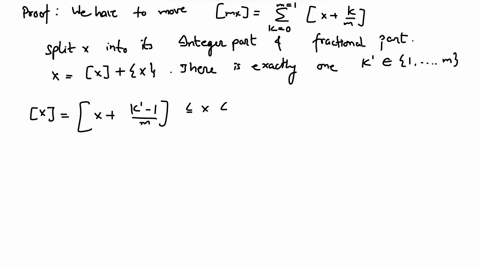 Proof: We have to move [mx] = \sum_{k=0}^{m=1} [x + \frac{k}{m}]
split x into its Integer part & fractional part.
x = [x] + {x}. There is exactly one k' ∈ {1, .... m}
[x] = [x + \frac{k'-1}{m}] ≤ x <